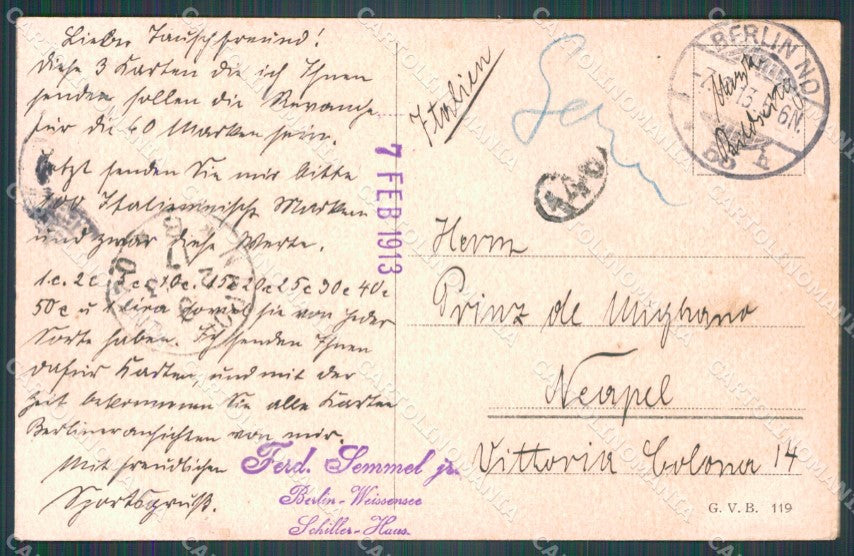 Lieber Tauschfreund!
Diese 3 Karten die ich Ihnen
senden sollen die Revanche
für die 40 Marken sein.
Jetzt senden Sie mir bitte
100 Italienische Marken
und zwar diese Werte.
1c. 2c 5c 10c. 15c 20c 25c 30c 40c
50c u 1 lira soviel sie von jeder
Sorte haben. Ich senden Ihnen
dafür Karten, und mit der
Zeit bekommen Sie alle Karten
Berlineransichten von mir.
Mit freundlichen
Sportsgruß.
Ferd. Semmel jr.
Berlin-Weissensee
Schiller-Haus.
7 FEB 1913
Italien
BERLIN NO
13. 5-6N.
Marke
Herrn
Prinz de Mighano
Neapel
Vittoria Colona 14
G. V. B. 119
CARTOLINOMANIA